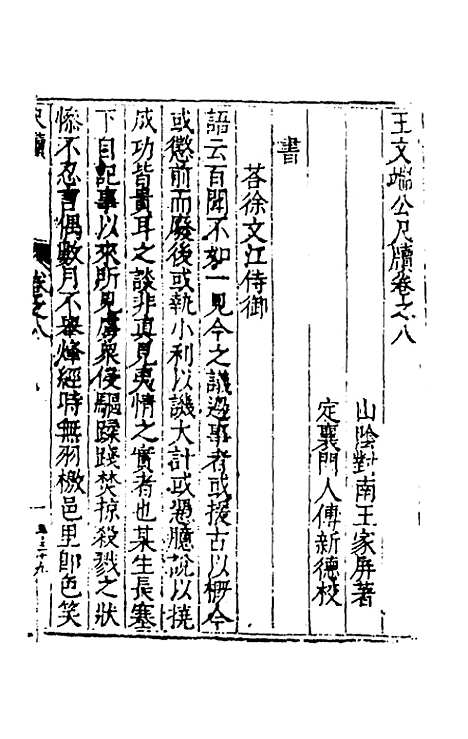 王文端公尺牘卷之八
山陰對南王家屏著
定襄門人傅新德校
書
荅徐文江侍御
語云百聞不如一見今之議邊事者或援古以概今
或懲前而廢後或執小利以譏大計或憑臆說以撓
成功皆貴耳之談非真見夷情之實者也某生長塞
下自記事以來所見虜衆侵驅蹂踐焚掠殺戮之狀
慘不忍言偶數月不舉烽經時無羽檄邑里郎色笑
尺牘
卷之八